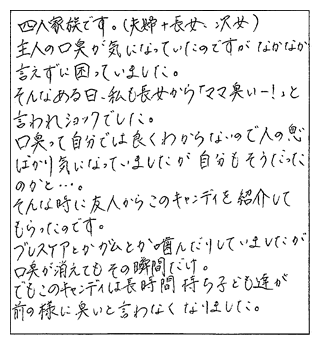 四人家族です。(夫婦+長女、次女)
主人の口臭が気になっていたのですがなかなか
言えずに困っていました。
そんなある日、私も長女から「ママ臭いー!」と
言われショックでした。
口臭って自分では良くわからないので人の息
ばかり気になっていましたが自分もそうだった
のかと…。
そんな時に友人からこのキャンディを紹介して
もらったのです。
ブレスケアとかガムとか噛んだりしていましたが
口臭が消えてもその瞬間だけ。
でもこのキャンディは長時間持ち子ども達が
前の様に臭いと言わなくなりました。